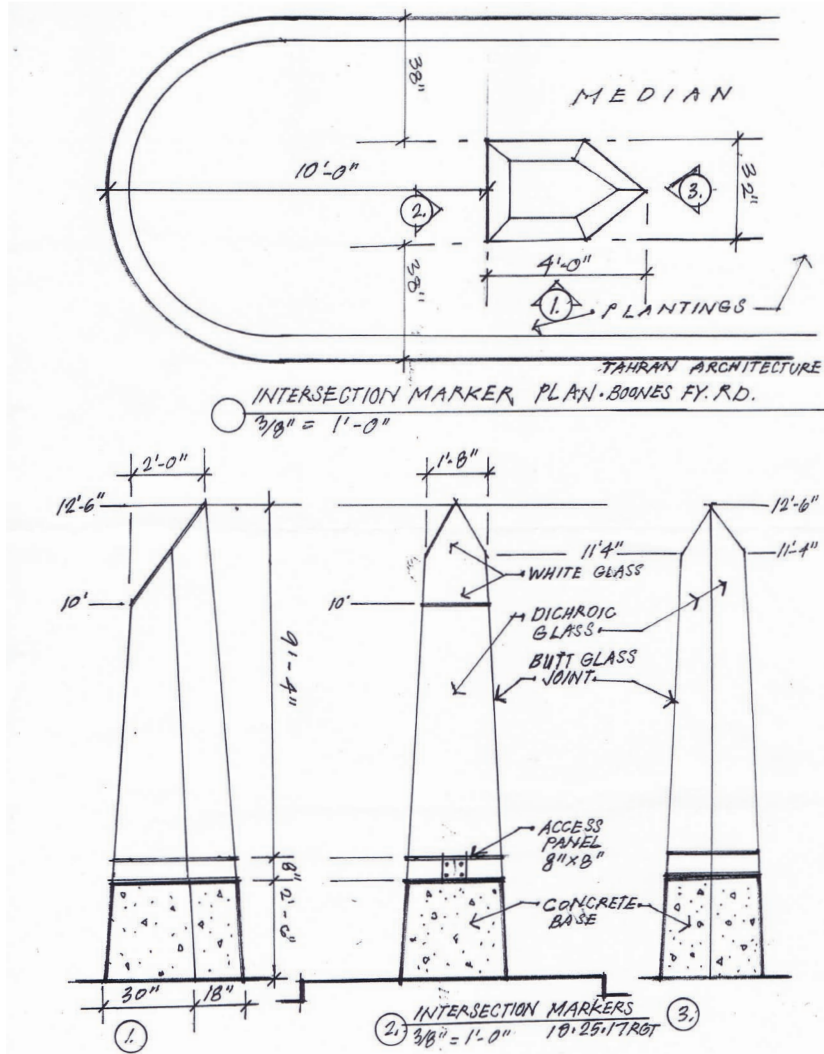 38"
MEDIAN
10'-0"
2.
3.
32"
38"
4'-0"
1.
PLANTINGS
TAHRAN ARCHITECTURE
INTERSECTION MARKER PLAN·BOONES FY. RD.
3/8" = 1'-0"
2'-0"
1'-8"
12'-6"
12'-6"
11'4"
11'-4"
WHITE GLASS
10'
10'
DICHROIC
GLASS
9'-4"
BUTT GLASS
JOINT
ACCESS
PANEL
8"X8"
8"
CONCRETE
BASE
30"
18"
1.
2.
INTERSECTION MARKERS
3/8" = 1'-0"
3.